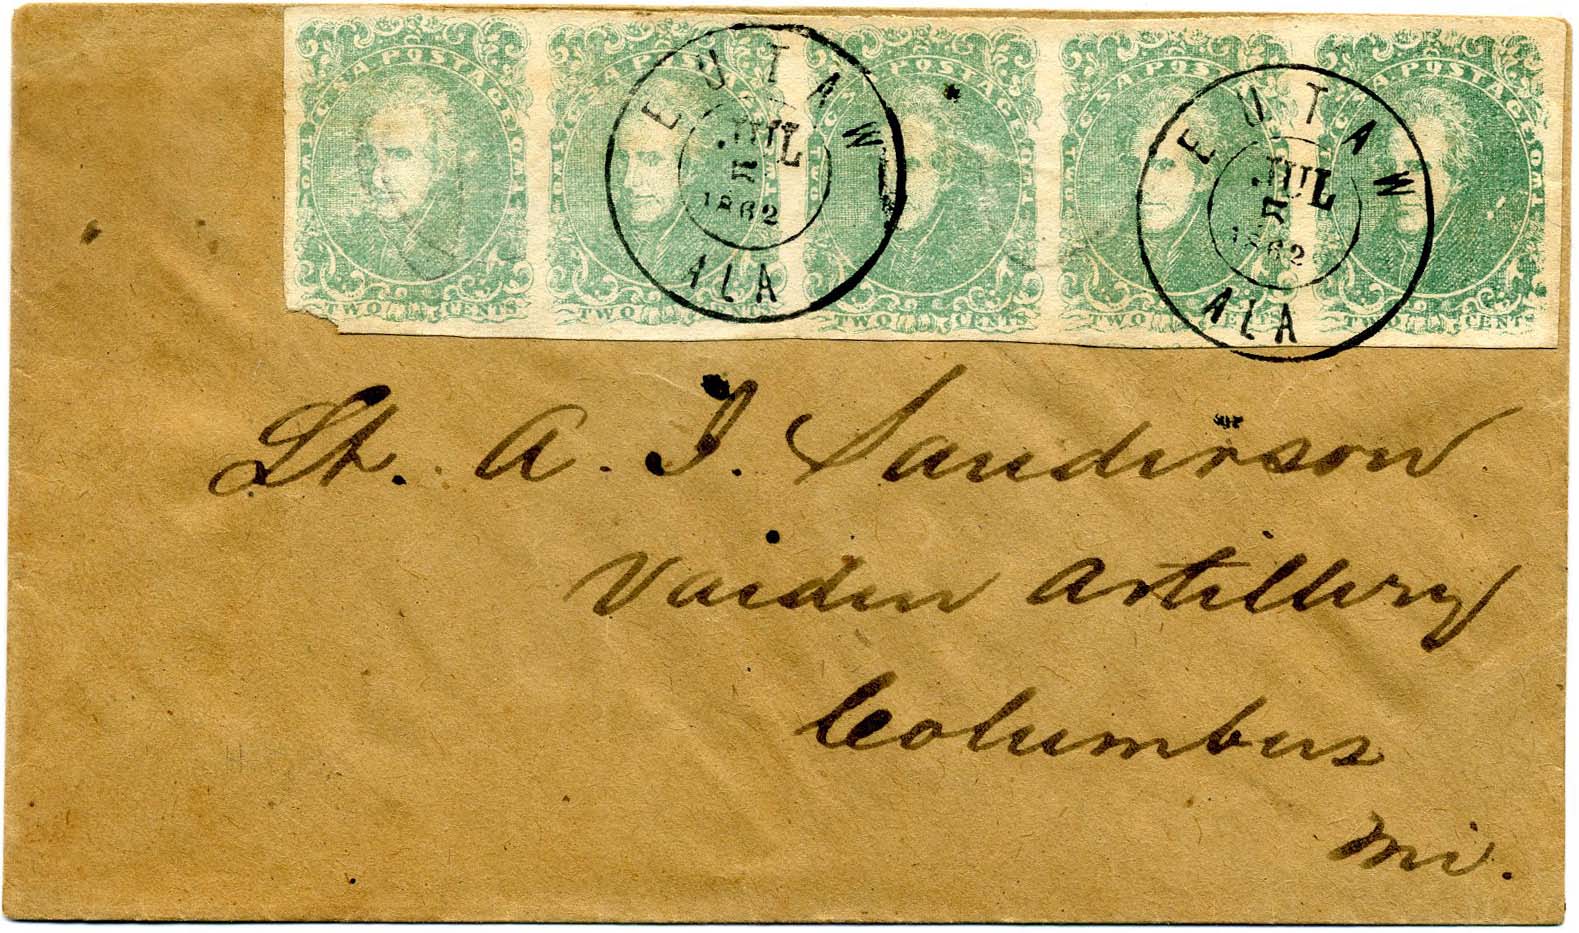 C.S.A POSTAGE TWO
TWO CENTS
TWO CENTS
TWO CENTS
TWO CENTS
TWO CENTS
EUTAW
JUL
1862
ALA
EUTAW
JUL
1862
ALA
Lt. A. J. Sanderson
Vaiden Artillery
Columbus
Mi.